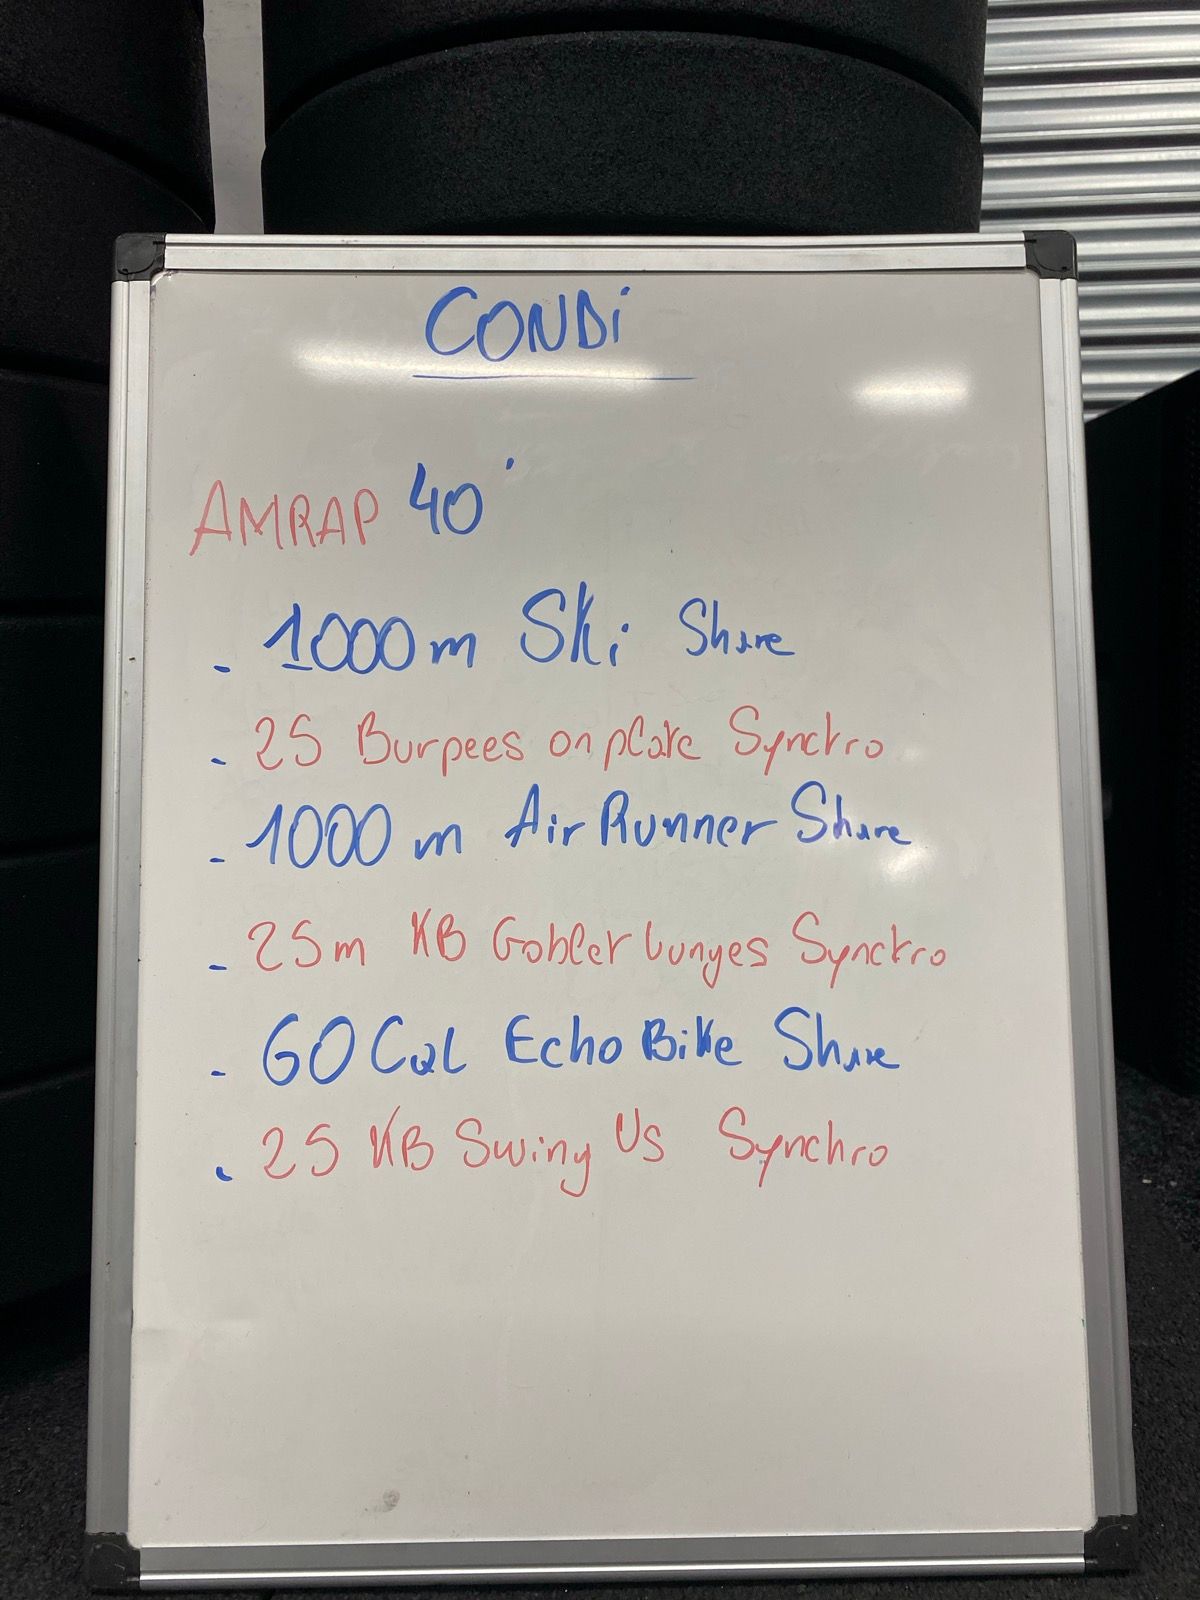 CONDi
AMRAP 40'
- 1000m Ski Share
- 25 Burpees on plate Synchro
- 1000 m Air Runner Share
- 25m KB Goblet lunges Synchro
- 60 Cal Echo Bike Share
- 25 KB Swing US Synchro